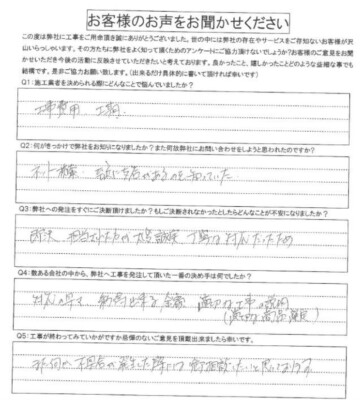 お客様のお声をお聞かせください
この度は弊社に工事をご用命頂き誠にありがとうございました。世の中には弊社の存在やサービスをご存知ないお客様が沢
山いらっしゃいます。その方たちに弊社をよく知って頂くためのアンケートにご協力頂けないでしょうか?お客様のご意見をお聞
かせいただき今後の活動に反映させていただきたいと考えております。良かったこと、嬉しかったことどのような些細な事でも
結構です。是非ご協力お願い致します。(出来るだけ具体的に書いて頂ければ幸いです)
Q1:施工業者を決められる際にどんなことで悩んでいましたか?
工事費用 工期
Q2:何がきっかけで弊社をお知りになりましたか?また何故弊社にお問い合わせをしようと思われたのですか?
ネット検索
知っていた
Q3:弊社への発注をすぐにご決断頂けましたか?もしご決断されなかったとしたらどんなことが不安になりましたか?
即決 丁寧な対応だったため
Q4:数ある会社の中から、弊社へ工事を発注して頂いた一番の決め手は何でしたか?
対応の早さ 適切な工事の説明
Q5:工事が終わってみていかがですか忌憚のないご意見を頂戴出来ましたら幸いです。
又何か不具合が発生した際には ご相談したいと思います